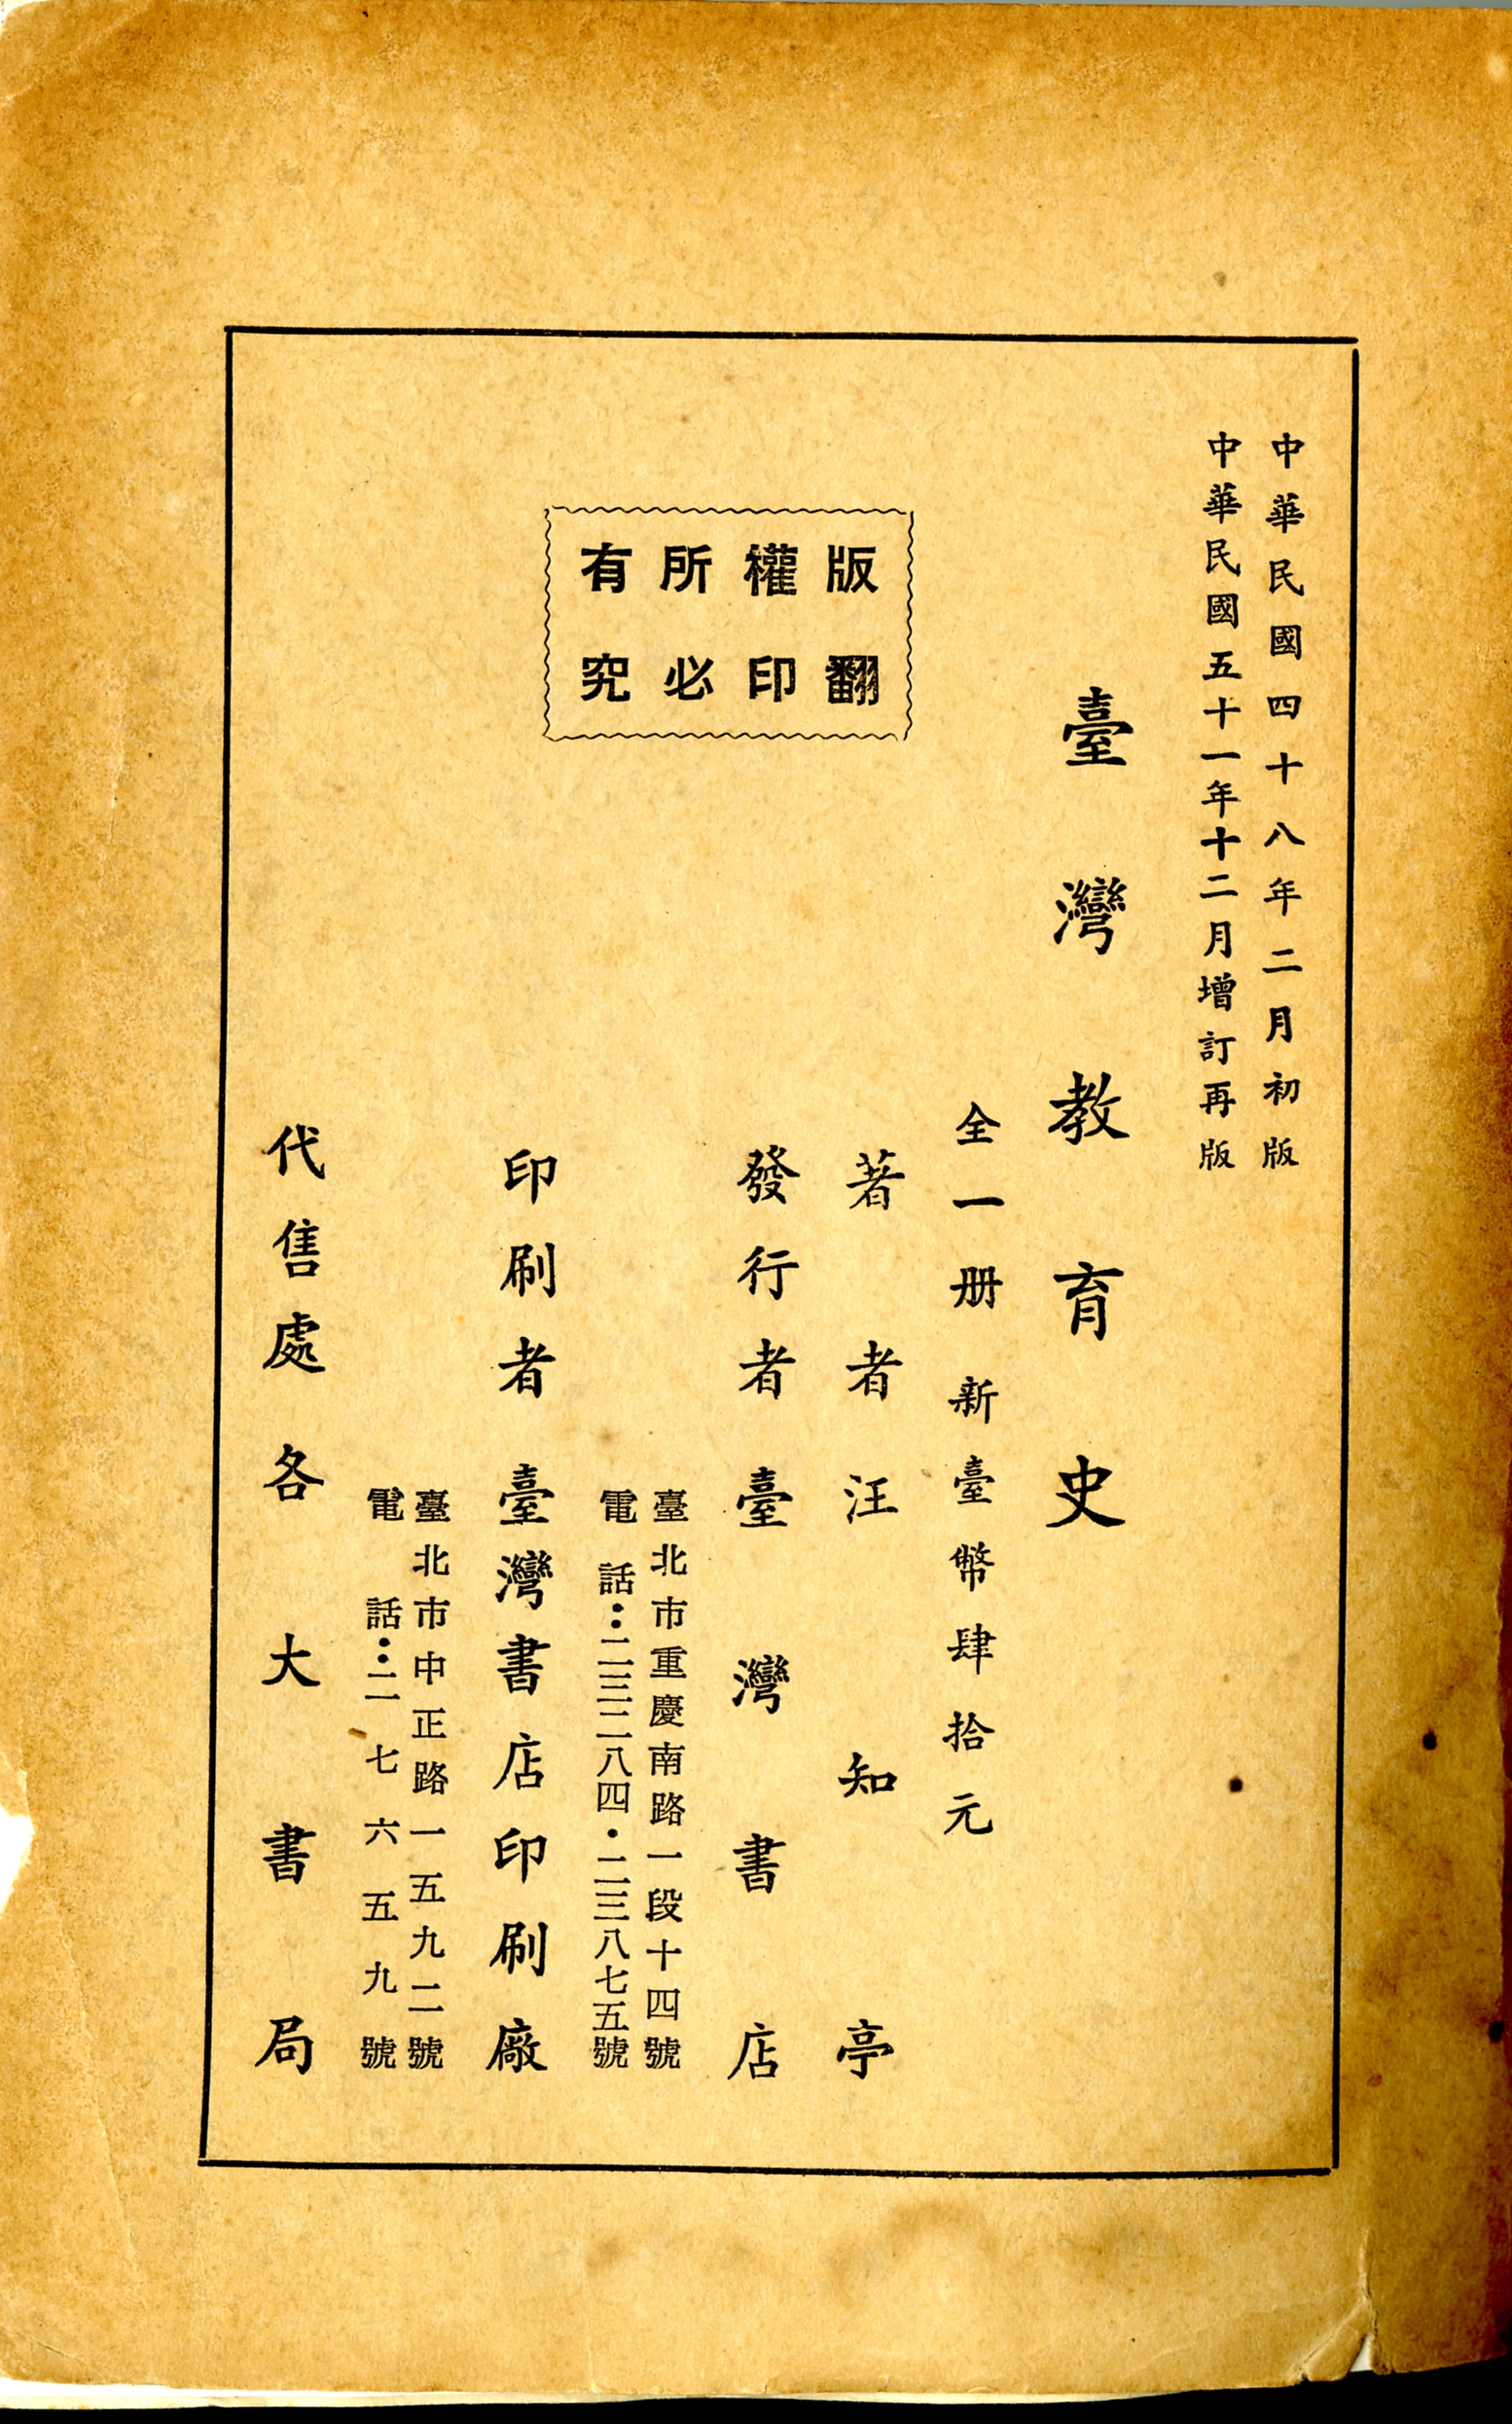 中華民國四十八年二月初版
中華民國五十一年十二月增訂再版
臺灣教育史
全一册新臺幣肆拾元
版權所有
翻印必究
著者汪知亭
發行者臺灣書店
臺北市重慶南路一段十四號
電話：二三二八四・二三八七五號
印刷者臺灣書店印刷廠
臺北市中正路一五九二號
電話：二七六五九號
代售處各大書局